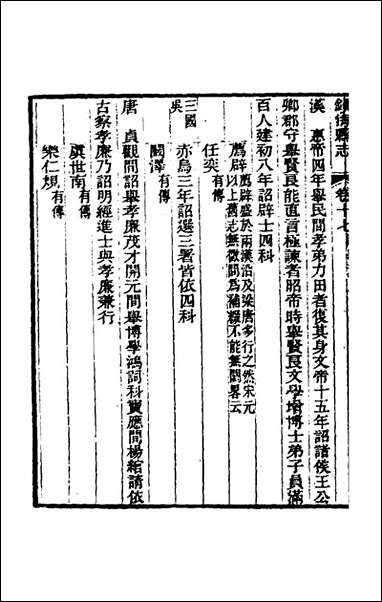 鎮海縣志　卷十七
漢　惠帝四年舉民間孝弟力田者復其身文帝十五年詔諸侯王公
卿郡守舉賢良能直言極諫者昭帝時舉賢良文學增博士弟子員滿
百人建初八年詔辟士四科
薦辟盛於兩漢沿及梁唐多行之然宋元
薦辟以上舊志無徵間爲補綴不能無闕畧云
任奕有傳
三國
吳
赤烏三年詔選三署皆依四科
闞澤有傳
唐　貞觀問詔舉孝廉茂才開元間舉博學鴻詞科寶應間楊綰請依
古察孝廉乃詔明經進士與孝廉兼行
虞世南有傳
欒仁規有傳